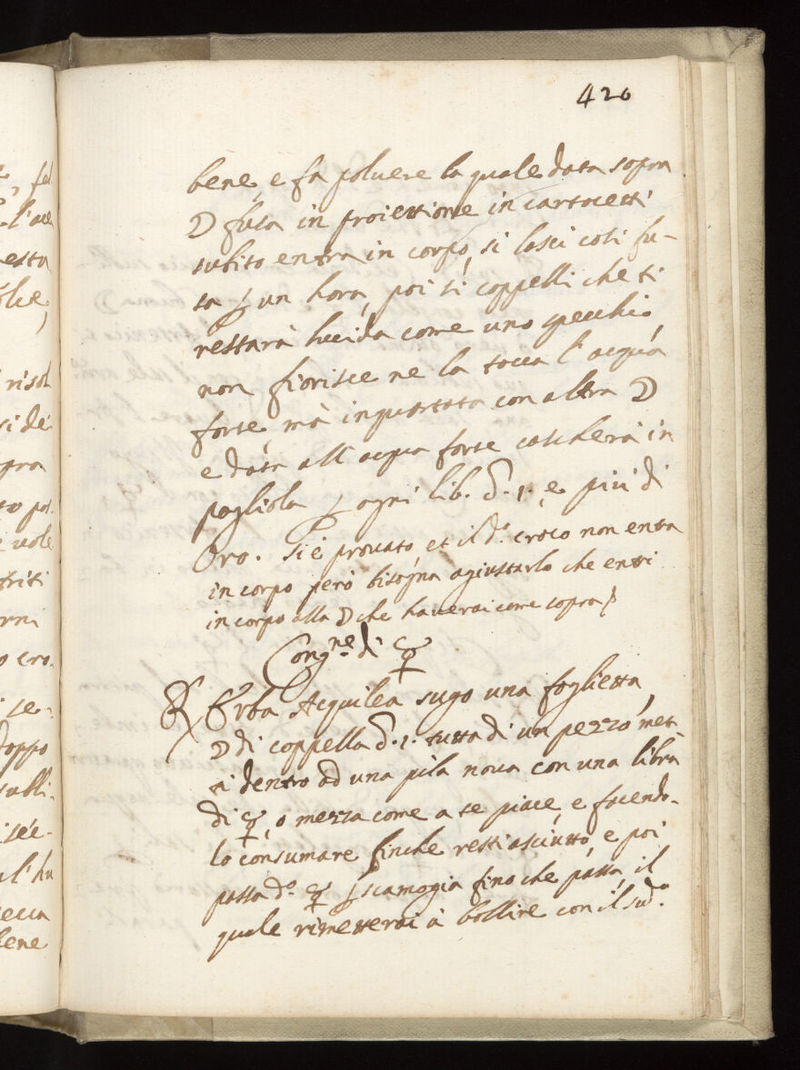 420
bene e fa poluere la quale data sopra
☽ fusa in proiettione in cartocetti
subito entra in corpo, si lasci così fu-
sa ꝑ un hora, poi si coppelli che ti
restarà lucida come uno specchio,
non fiorisce ne la tocca l'acqua
forte, mà inquartata con altra ☽
e data all'acqua forte cascherà in
pagliola ꝑ ogni lib. d. 1. e più di
Oro. si è prouato, et il d.º croco non entra
in corpo però bisogna agiustarlo che entri
in corpo alla ☽ che hauerai come sopra
Cong.ne di ☿
℞ Erba Acquilea sugo una foglietta,
☽ di coppella d. 1. tutta di un pezzo met-
ti dentro ad una pila noua con una libra
di ☿, o mezza come a te piace, e facendo-
lo consumare finche resti asciutto, e poi
passa d.º ☿ ꝑ scamogia fino che passa, il
quale rimetterai à bollire con il sud.º